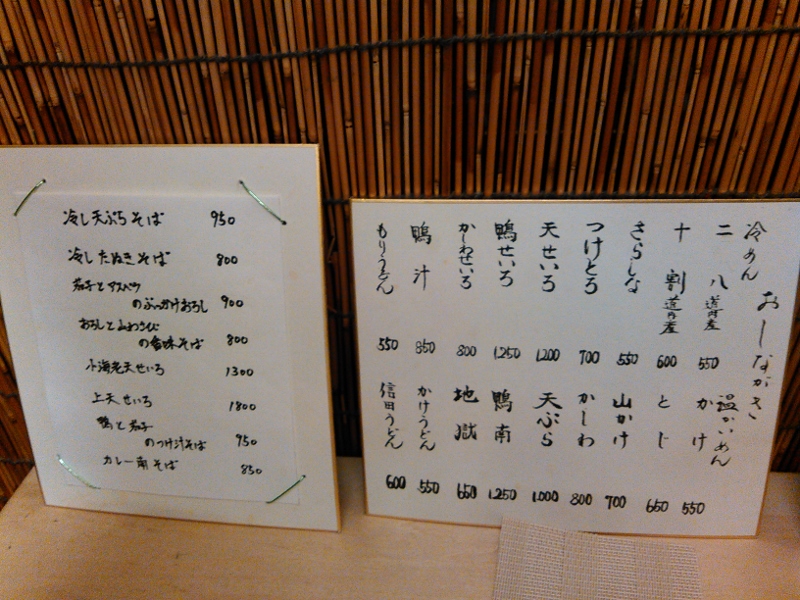 冷し天ぷらそば 950
冷したぬきそば 800
茄子とアスパラ
のぶっかけおろし 900
おろしと山わさび
の香味そば 800
小海老天せいろ 1300
上天せいろ 1800
鴨と茄子
のつけ汁そば 950
カレー南そば 850
おしながき
冷めん
二八 道内産 550
十割 道内産 600
さらしな 550
つけとろ 700
天せいろ 1,200
鴨せいろ 1,250
かしわせいろ 800
鴨汁 850
もりうどん 550
温かいめん
かけ 550
とじ 650
山かけ 700
かしわ 800
天ぷら 1,000
鴨南 1,250
地獄 650
かけうどん 550
信田うどん 600